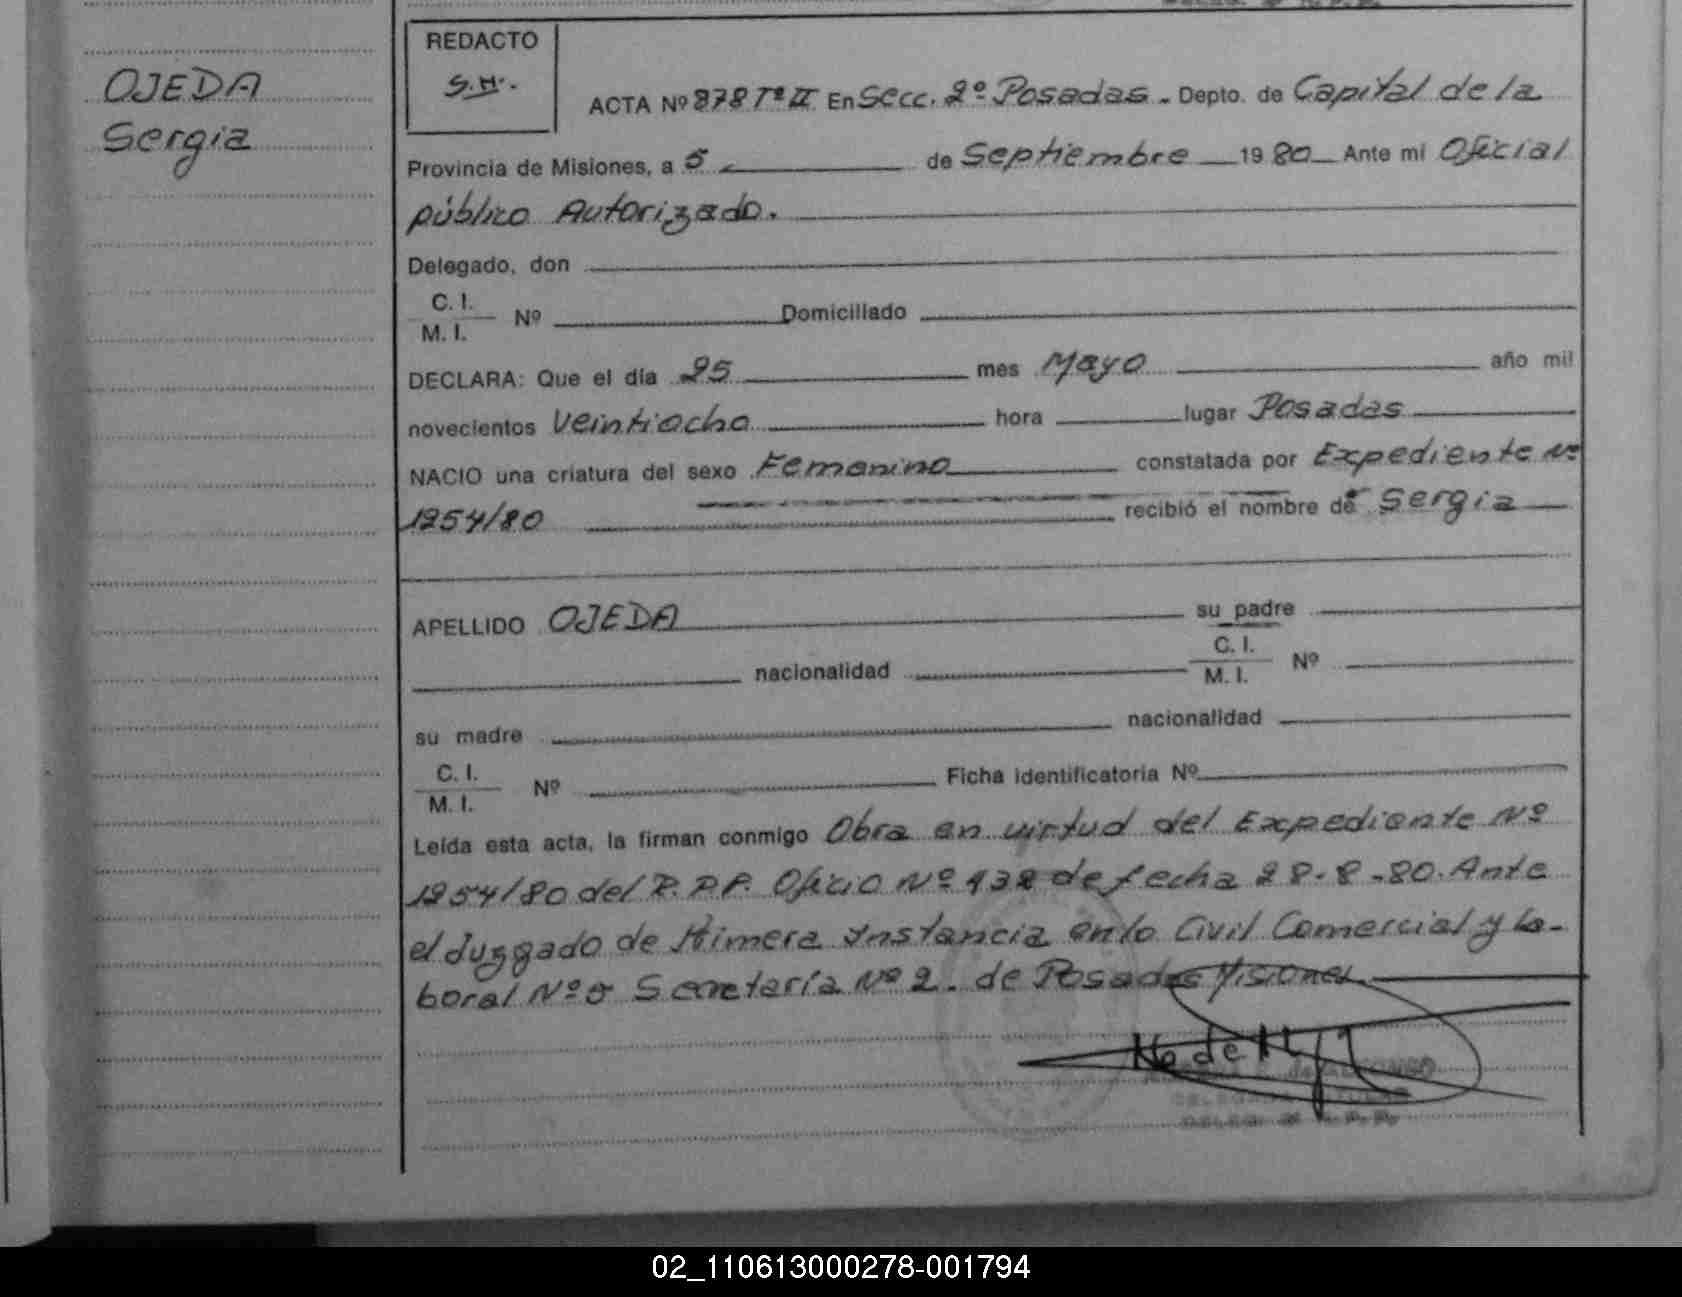 OJEDA
Sergia
REDACTO
S.H.
ACTA Nº 878 Tº II En Secc. 2º Posadas. Depto. de Capital de la
Provincia de Misiones, a 5 de Septiembre 1980 Ante mi Oficial
público Autorizado.
Delegado, don
C. I.
M. I. Nº Domiciliado
DECLARA: Que el día 25 mes Mayo año mil
novecientos veintiocho hora lugar Posadas
NACIO una criatura del sexo Femenino constatada por Expediente Nº
1254/80 recibió el nombre de Sergia
APELLIDO OJEDA su padre
nacionalidad C. I.
M. I. Nº
su madre nacionalidad
C. I.
M. I. Nº Ficha identificatoria Nº
Leída esta acta, la firman conmigo Obra en virtud del Expediente Nº
1254/80 del R.P.P. Oficio Nº 132 de fecha 28-8-80. Ante
el Juzgado de Primera Instancia en lo Civil Comercial y La-
boral Nº 5 Secretaría Nº 2. de Posadas Misiones
02_110613000278-001794